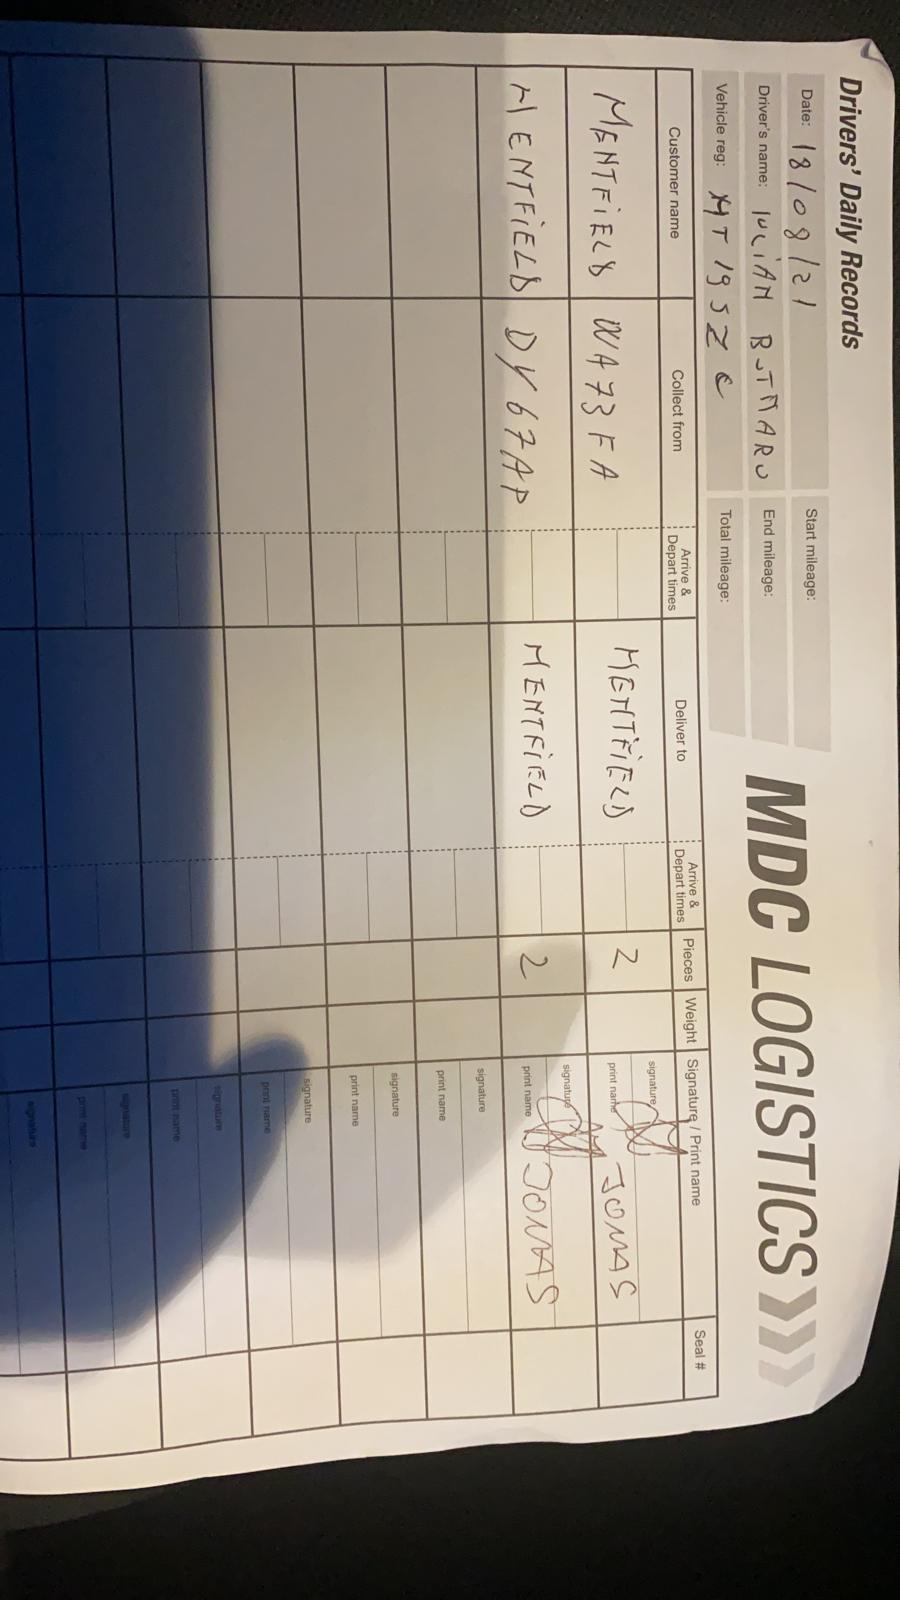 Drivers' Daily Records
MDC LOGISTICS
Date: 18/08/21
Start mileage:
Driver's name: IULIAN BUTNARU
End mileage:
Vehicle reg: MT19SZC
Total mileage:
Customer name Collect from Arrive & Depart times Deliver to Arrive & Depart times Pieces Weight Signature / Print name Seal #
MENTFIELD WA73FA MENTFIELD 2 signature
print name JONAS
MENTFIELD DY67AP MENTFIELD 2 signature
print name JONAS
signature
print name
signature
print name
signature
print name
signature
print name
signature
print name
signature